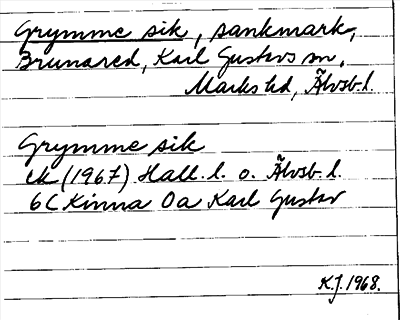 Grymme sik, sankmark,
Brunared, Karl Gustavs sn,
Marks hd, Älvsb. l.
Grymme sik
ek (1967) Hall. l. o. Älvsb. l.
6C Kinna 0a Karl Gustav
K.J. 1968.